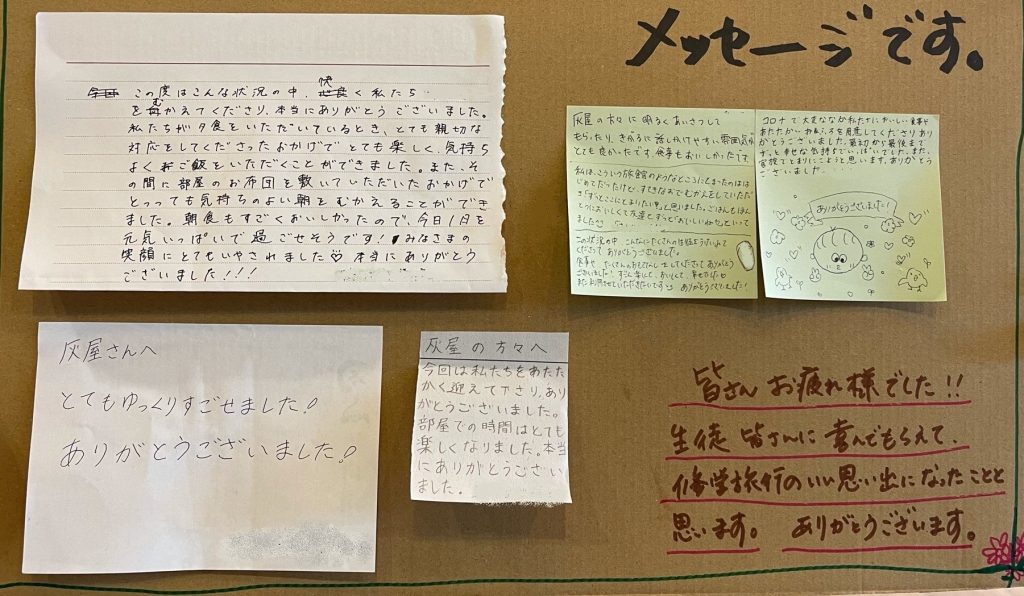 メッセージです。
この度はこんな状況の中、快く私たち
をむかえてくださり、本当にありがとう ございました。
私たちが夕食をいただいているとき、とても親切な
対応をしてくださったおかげで とても楽しく、気持ち
よく ご飯をいただくことができました。また、そ
の間に部屋のお布団を敷いていただいたおかげで
とっっても気持ちのよい朝をむかえることができ
ました。朝食もすごくおいしかったので、今日1日を
元気いっぱいで過ごせそうです! みなさまの
笑顔にとてもいやされました♡ 本当にありがとう
ございました!!!
灰屋の方々に明るくあいさつして
もらったり、きがるに話しかけやすい雰囲気が
とても良かったです。食事もおいしかったです。
私は、こういう旅館のようなところにとまったのはは
じめてだったけど、すてきなおでむかえをしていただ
き「ずっとここにとまりたいな」と思いました。ごはんもほん
とうにおいしくて友達とずっと「おいしいね」といって
ました
この状況の中 こんなにたくさんの生徒をうけいれて
くださって ありがとうございました。
コロナで大変ななか私たちにおいしい食事や
あたたかいお
を用意してくださりあり
がとうございました。最初から最後まで
ずっと幸せな気持ちでいっぱいでした。また、
家族でとまりにこようと思います。ありがとう
ございました。
ありがとうございました!
灰屋さんへ
とてもゆっくりすごせました!
ありがとうございました!
灰屋の方々へ
今回は私たちをあたた
かく迎えて下さり、あり
がとうございました。
部屋での時間はとても
楽しくなりました。本当
にありがとうござい
ました。
皆さん お疲れ様でした!!
生徒 皆さんに 喜んでもらえて、
修学旅行のいい思い出になったことと
思います。 ありがとうございます。